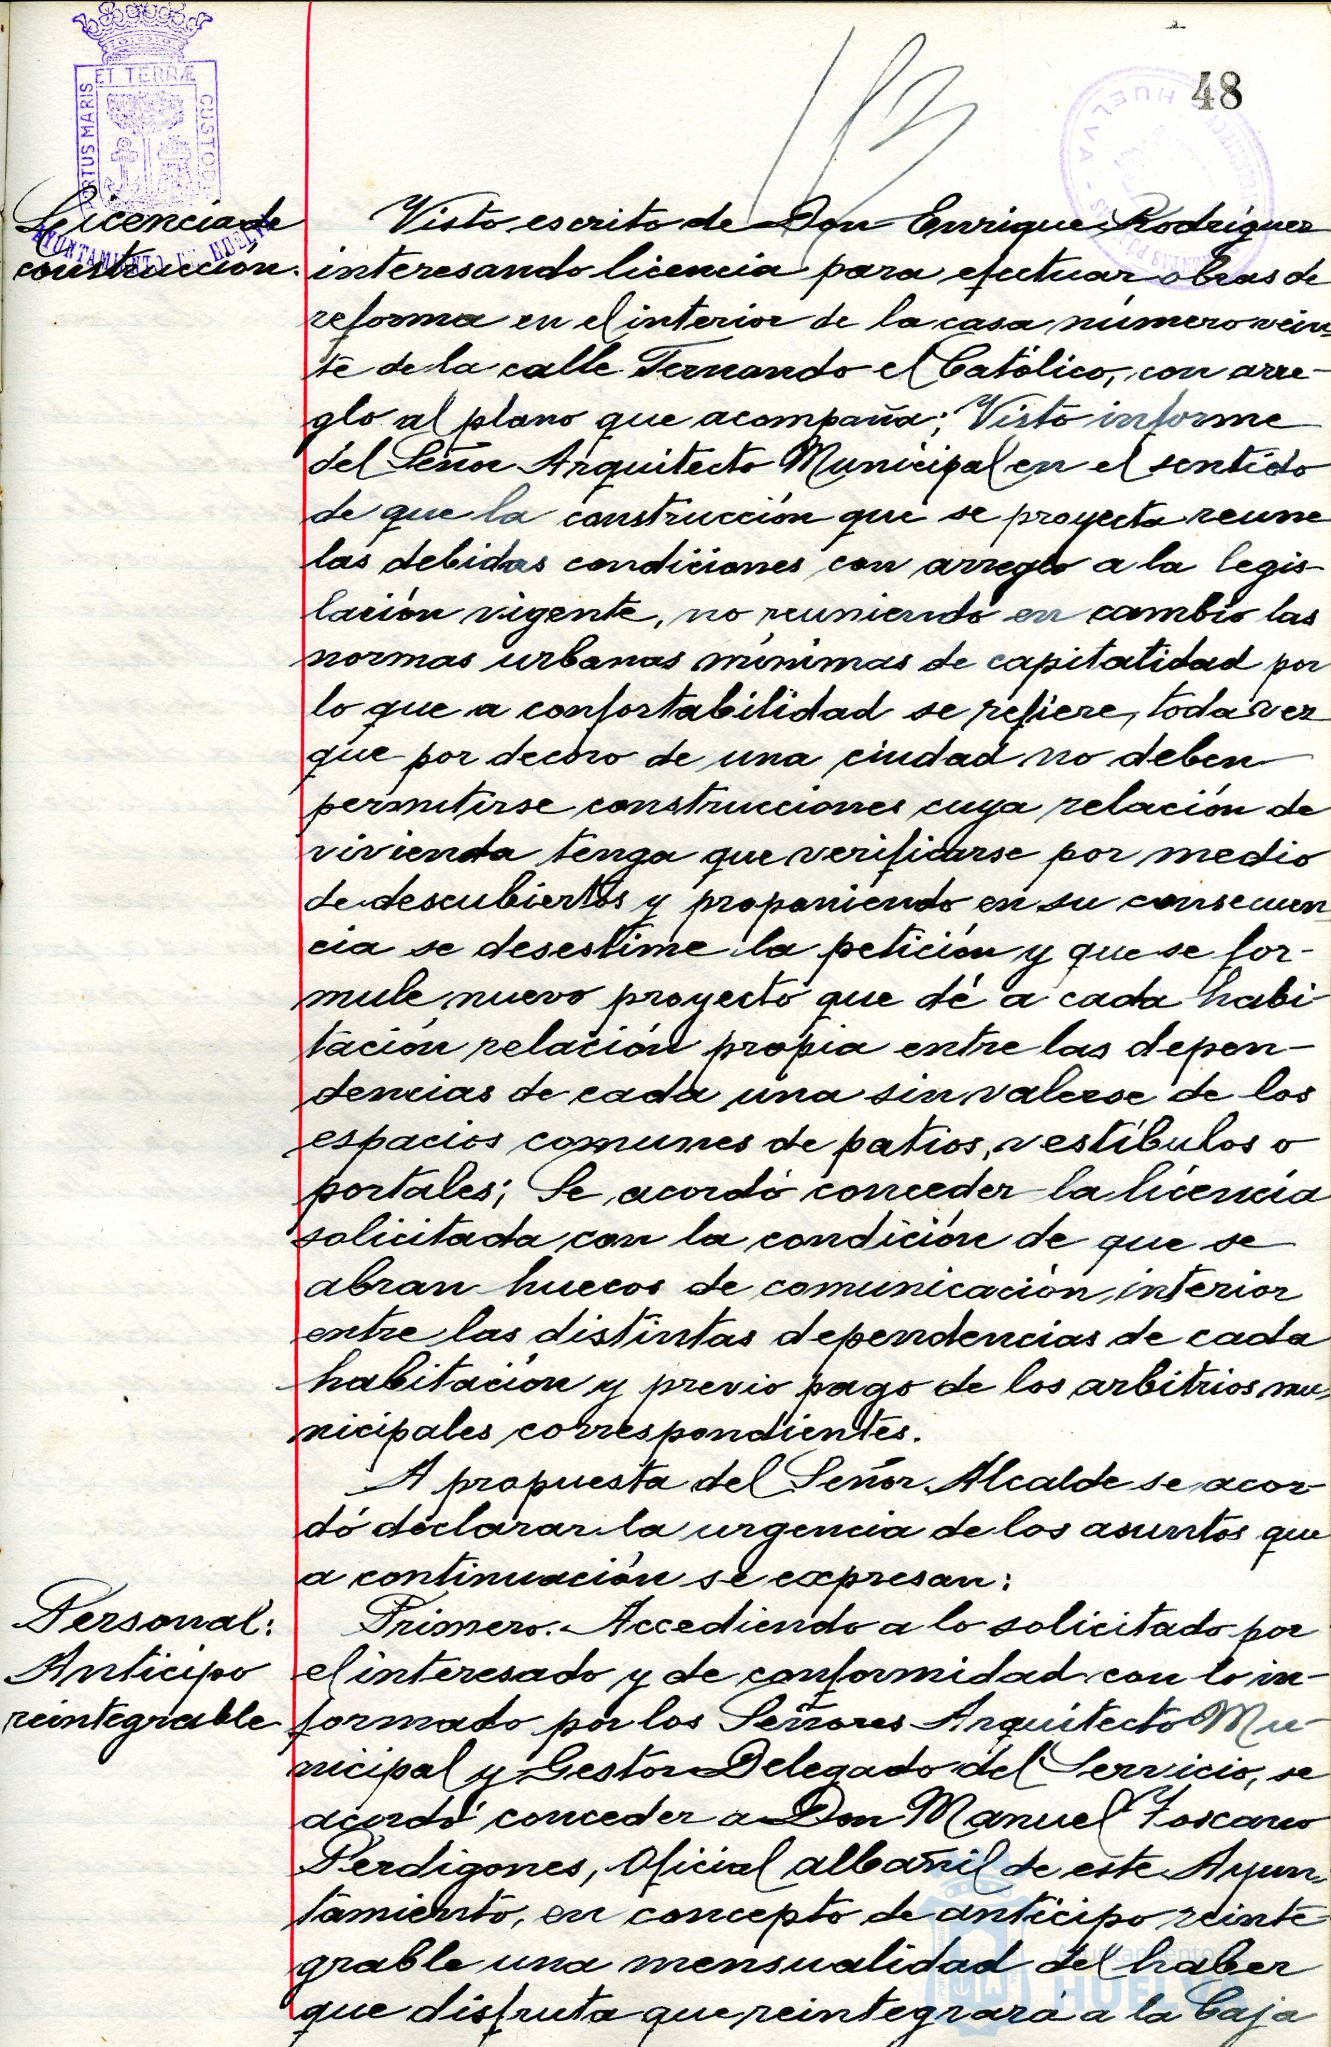 48
PORTUS MARIS ET TERRÆ CUSTODIA
AYUNTAMIENTO DE HUELVA
HUELVA
Licencia de
construcción.
Visto escrito de Don Enrique Rodríguez
interesando licencia para efectuar obras de
reforma en el interior de la casa número vein-
te de la calle Fernando el Católico, con arre-
glo al plano que acompaña; Visto informe
del Señor Arquitecto Municipal en el sentido
de que la construcción que se proyecta reune
las debidas condiciones con arreglo a la legis-
lación vigente, no reuniendo en cambio las
normas urbanas mínimas de capitalidad por
lo que a confortabilidad se refiere, toda vez
que por decoro de una ciudad no deben
permitirse construcciones cuya relación de
vivienda tenga que verificarse por medio
de descubiertos y proponiendo en su consecuen
cia se desestime la petición y que se for-
mule nuevo proyecto que dé a cada habi-
tación relación propia entre las depen-
dencias de cada una sin valerse de los
espacios comunes de patios, vestíbulos o
portales; Se acordó conceder la licencia
solicitada con la condición de que se
abran huecos de comunicación interior
entre las distintas dependencias de cada
habitación y previo pago de los arbitrios mu-
nicipales correspondientes.
A propuesta del Señor Alcalde se acor-
dó declarar la urgencia de los asuntos que
a continuación se expresan:
Personal:
Anticipo
reintegrable
Primero. Accediendo a lo solicitado por
el interesado y de conformidad con lo in-
formado por los Señores Arquitecto Mu-
nicipal y Gestor Delegado del Servicio, se
acordó conceder a Don Manuel Toscano
Perdigones, Oficial albañil de este Ayun-
tamiento, en concepto de anticipo reinte
grable una mensualidad del haber
que disfruta que reintegrará a la Caja
Ayuntamiento de
HUELVA